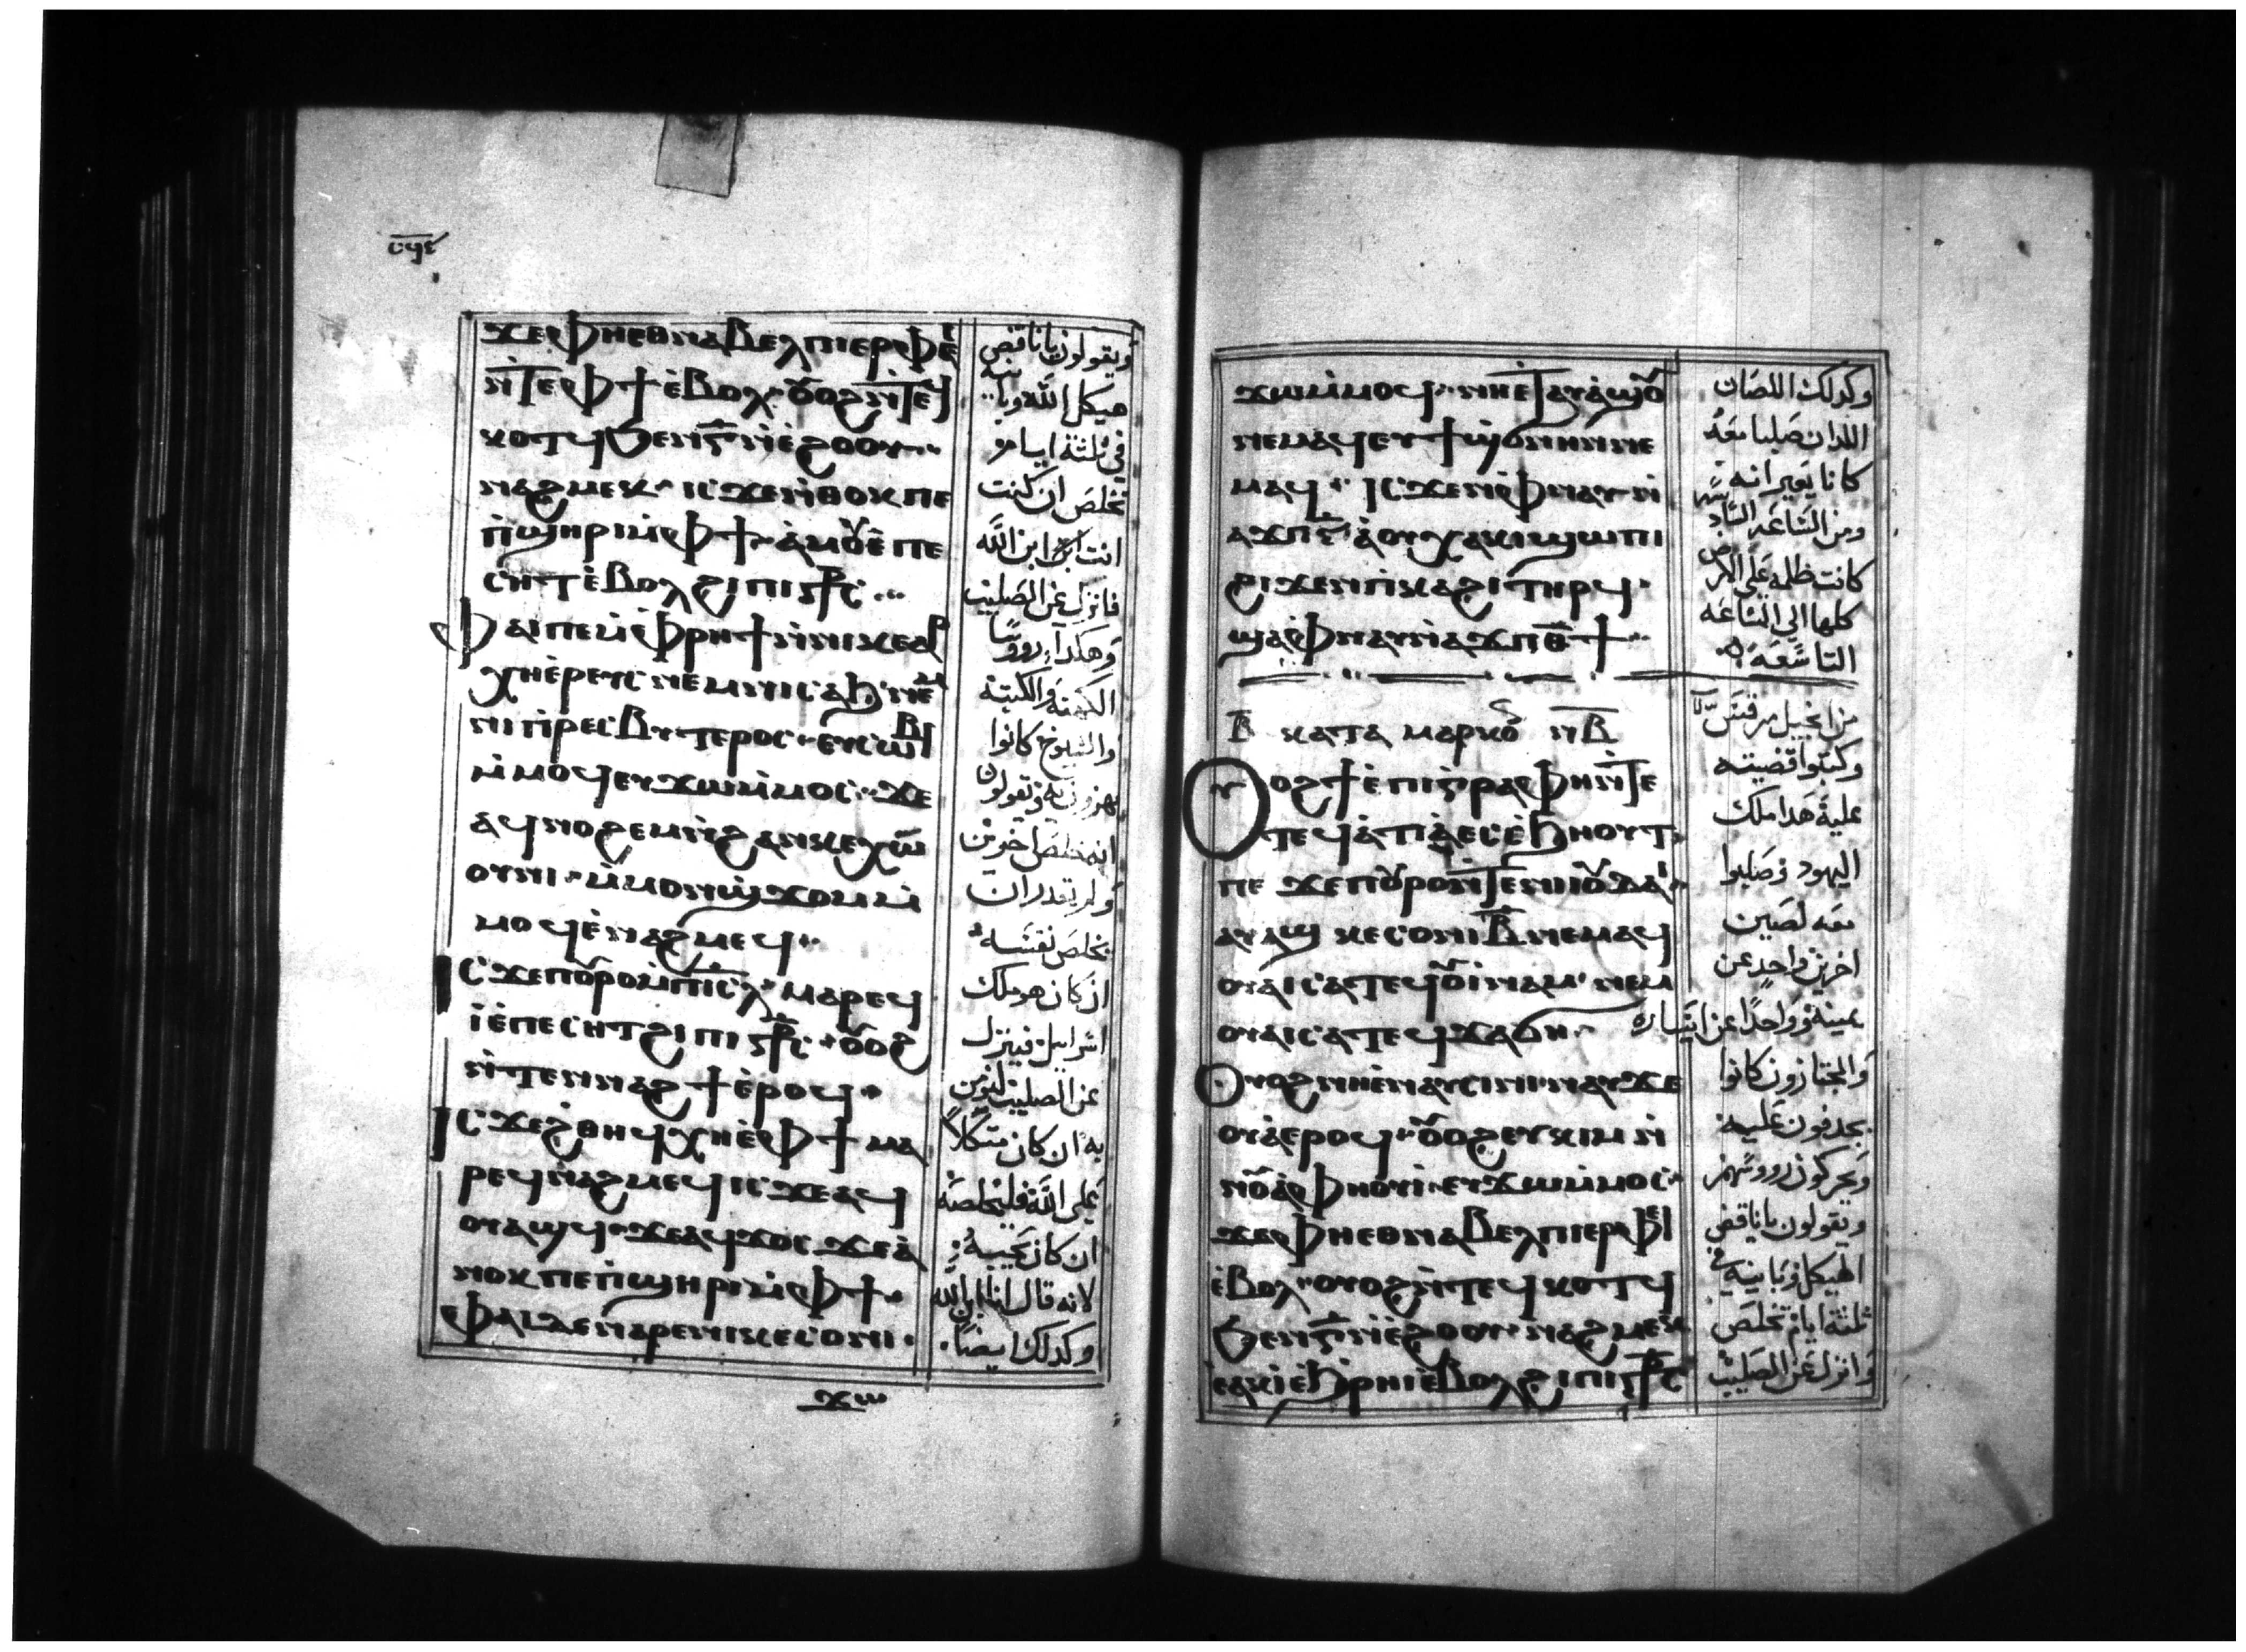 ⲥϥⲉ
ϫⲉⲫⲏⲉⲑⲛⲁⲃⲉⲗⲡⲓⲉⲣⲫⲉ̀
ⲛ̀ⲧⲉⲫϯⲉ̀ⲃⲟⲗ ⲟ̅ⲟϩⲛ̀ⲧⲉϥ
ⲕⲟⲧϥϧⲉⲛⲅ̅ⲛ̀ⲉ̀ϩⲟⲟⲩ
ⲛⲁϩⲙⲉⲕ ⲓⲥϫⲉⲛ̀ⲑⲟⲕⲡⲉ
ⲡ̀ϣⲏⲣⲓⲙ̀ⲫϯ ⲁ̀ⲙⲟⲩⲉ̀ⲡⲉ
ⲥⲏⲧⲉ̀ⲃⲟⲗϩⲓⲡⲓⲥⳁⲥ
ⲫⲁⲓⲡⲉⲙ̀ⲫⲣⲏϯⲛ̀ⲛⲓⲕⲉⲁⲣ
ⲭⲏⲉ̀ⲣⲉⲩⲥ ⲛⲉⲙⲛⲓⲥⲁϧ ⲛⲉⲙ
ⲛⲓⲡ̀ⲣⲉⲥⲃⲩⲧⲉⲣⲟⲥ ⲉⲩⲥⲱⲃⲓ
ⲙ̀ⲙⲟϥⲉⲩϫⲱⲙ̀ⲙⲟⲥ ϫⲉ
ⲁϥⲛⲟϩⲉⲙⲛ̀ϩⲁⲛⲕⲉⲭⲱ
ⲟⲩⲛⲓ ⲙ̀ⲙⲟⲛϣϫⲟⲙⲙ̀
ⲙⲟϥⲉ̀ⲛⲁϩⲙⲉϥ
ⲓⲥϫⲉⲡⲟⲩⲣⲟⲙ̀ⲡⲓⲥⲗ ⲙⲁⲣⲉϥ
ⲓ̀ⲉ̀ⲡⲉⲥⲏⲧϩⲓⲡⲓⲥⳁⲥ ⲟⲩⲟϩ
ⲛ̀ⲧⲉⲛⲛⲁϩϯⲉ̀ⲣⲟϥ
ⲓⲥϫⲉϩⲑⲏϥⲭⲏⲉ̀ⲫϯ ⲙⲁ
ⲣⲉϥⲛⲁϩⲙⲉϥ ⲓⲥϫⲉⲁϥ
ⲟⲩⲁϣϥ ϫⲉⲁϥϫⲟⲥ ϫⲉⲁ̀
ⲛⲟⲕⲡⲉⲡ̀ϣⲏⲣⲓⲙ̀ⲫϯ
ⲫⲁⲓⲇⲉⲛⲁⲣⲉⲛⲓⲕⲉⲥⲟⲛⲓ
ϫⲱ
ويقولون يا ناقض
هيكل الله وبانيه
في ثلثة ايام
تخلص ان كنت
انت ابن الله
فانزل عن الصليب
وهكدا رووسا
الكهنه والكتبه
والشيوخ كانوا
يهزون به ويقولون
انه خلص اخرين
ولم يقدر ان
يخلص نفسه
ان كان هو ملك
اسراييل فينزل
عن الصليب لنومن
به ان كان متكلا
على الله فليخلصه
ان كان يحبه
لانه قال انا ابن الله
وكدلك ايضا
ϫⲱⲙ̀ⲙⲟϥ ⲛⲏⲉⲧⲁⲩⲁϣⲟⲩ
ⲛⲉⲙⲁϥⲉⲩϯϣⲫⲓⲧ ⲛⲉ
ⲙⲁϥ ⲓⲥϫⲉⲛⲫⲛⲁⲩⲛ̀
ⲁϫⲡⲋ̅ ⲁ̀ⲟⲩⲭⲁⲕⲓϣⲱⲡⲓ
ϩⲓϫⲉⲛⲡ̀ⲕⲁϩⲓⲧⲏⲣϥ
ϣⲁⲫⲛⲁⲩⲛ̀ⲁϫⲡⲑ̅ϯ
ⲃ̅ ⲕⲁⲧⲁ ⲙⲁⲣⲕⲟⲥ ⲛ̅ⲃ̅
ⲟⲩⲟϩϯⲉ̀ⲡⲓⲅ̀ⲣⲁⲫⲏⲛ̀ⲧⲉ
ⲧⲉϥⲁⲧⲓ̀ⲁ ⲉⲥⲥ̀ϧⲏⲟⲩⲧ
ⲡⲉ ϫⲉⲡⲟⲩⲣⲟⲛ̀ⲧⲉⲛⲓⲓⲟⲩⲇⲁⲓ
ⲁⲩⲁϣ ⲕⲉⲥⲟⲛⲓⲃ̅ⲛⲉⲙⲁϥ
ⲟⲩⲁⲓⲥⲁⲧⲉϥⲟⲩⲓ̀ⲛⲁⲙ ⲛⲉⲙ
ⲟⲩⲁⲓⲥⲁⲧⲉϥϫⲁϭⲏ
ⲟⲩⲟϩⲛⲏⲉ̀ⲛⲁⲩⲥⲓⲛⲓ ⲛⲁⲩϫⲉ
ⲟⲩⲁ̀ⲉⲣⲟϥ ⲟⲩⲟϩⲉⲩⲕⲓⲙⲛ̀
ⲛⲟⲩⲁ̀ⲫⲏⲟⲩⲓ ⲉⲩϫⲱⲙ̀ⲙⲟⲥ
ϫⲉⲫⲏⲉⲑⲛⲁⲃⲉⲗⲡⲓⲉⲣⲫⲉⲓ
ⲉ̀ⲃⲟⲗ ⲟⲩⲟϩⲛ̀ⲧⲉϥⲕⲟⲧϥ
ϧⲉⲛⲅ̅ⲛ̀ⲉ̀ϩⲟⲟⲩ ⲛⲁϩⲙⲉⲕ
ⲉⲁⲕⲓ̀ⲉ̀ϧⲣⲏⲓⲉ̀ⲃⲟⲗϩⲓⲡⲓⲥⳁⲥ
وكدلك اللصان
اللدان صلبا معه
كانا يعيرانه
ومن الساعه السادسه
كانت ظلمه على الارض
كلها الي الساعه
التاسعه
من انجيل مرقس
وكتبوا قضيته
عليه هدا ملك
اليهود وصلبوا
معه لصين
اخرين واحد عن
يمينه وواحدا عن يساره
والمجتازون كانوا
يجدفون عليه
ويحركون رووسهم
ويقولون يا ناقض
الهيكل وبانيه في
ثلثه ايام تخلص
وانزل عن الصليب